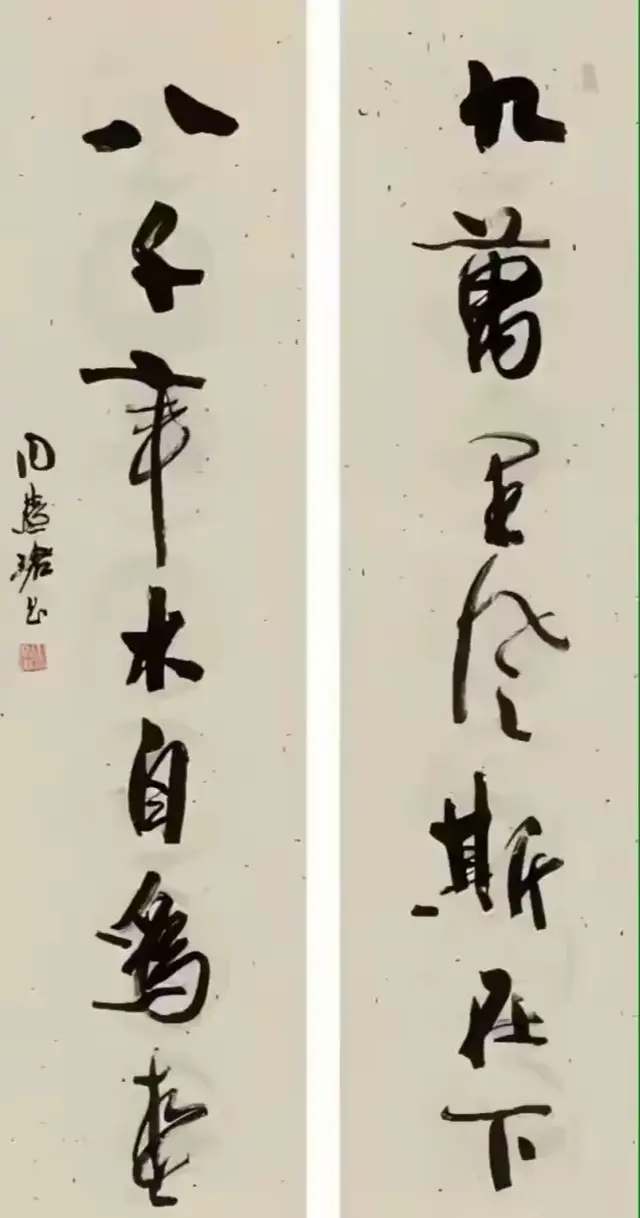 九萬里風斯在下
八千年木自為春
周慧珺書